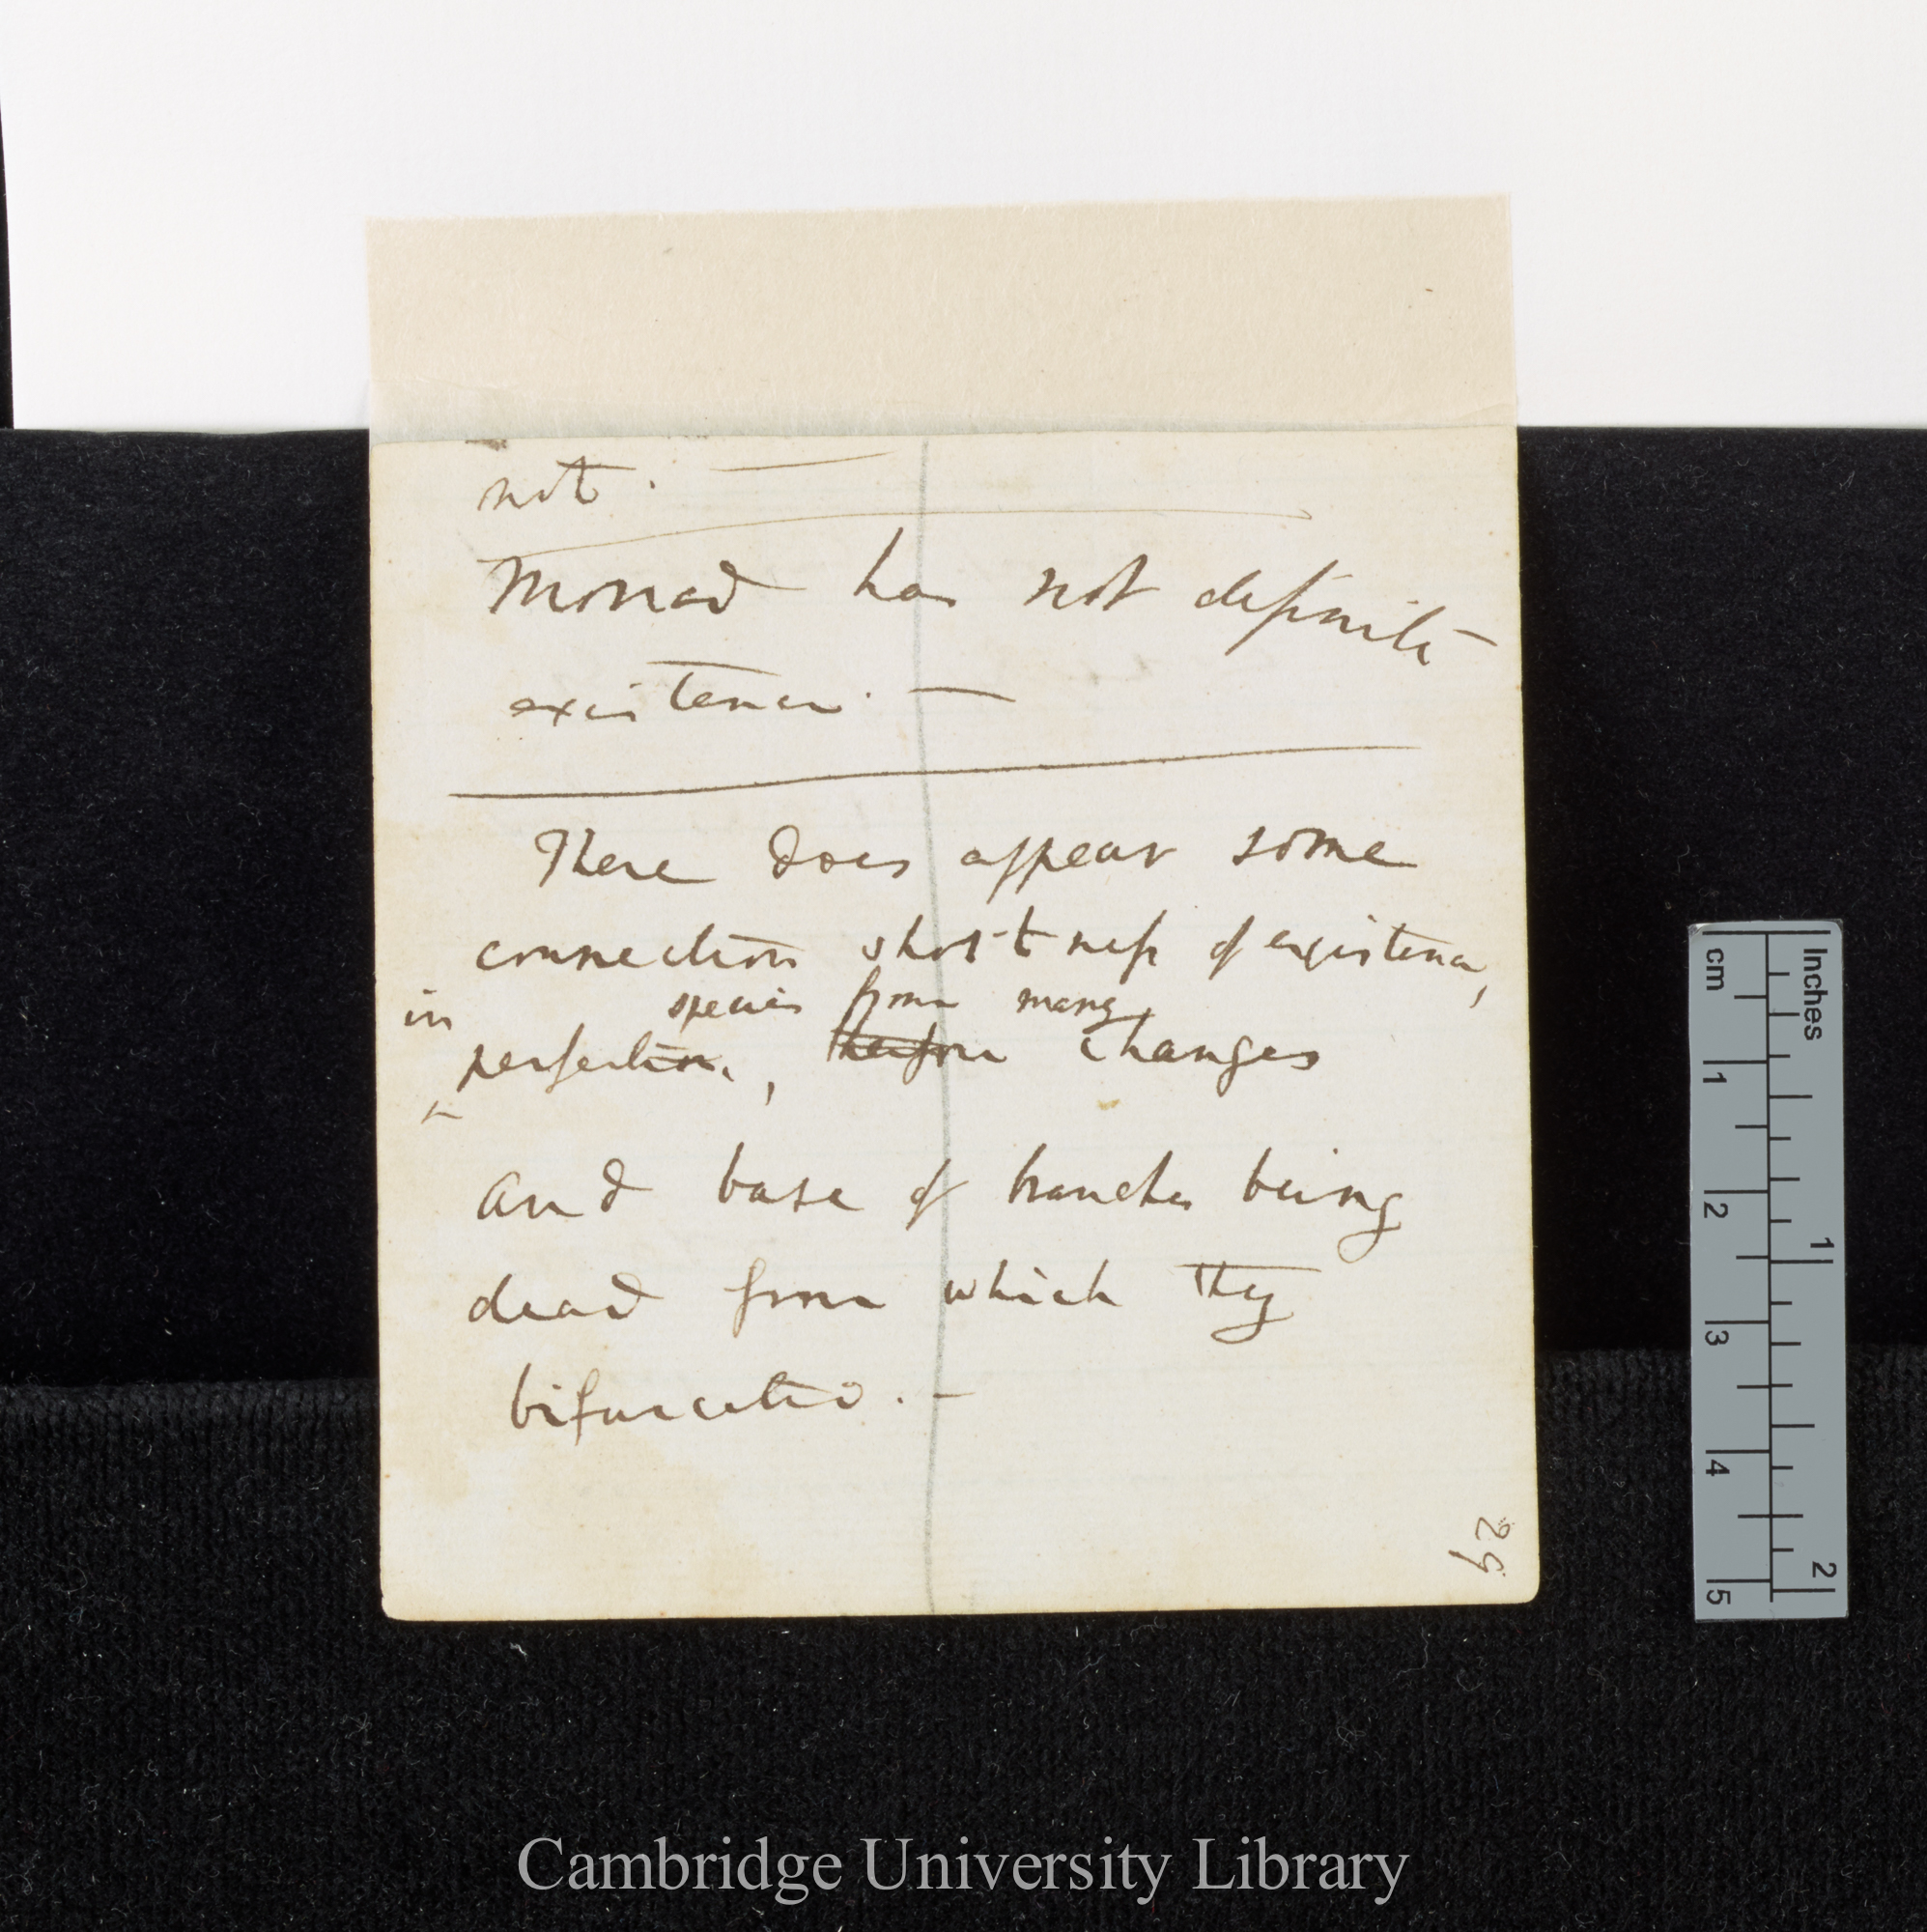 not. —
Monad has not definite
existence. —
There does appear some
connection shortness of existence,
in species from many
perfection, therefore changes
and base of branches being
dead from which they
bifurcated. —
29
cm 1 2 3 4 5
Inches 1 2
Cambridge University Library